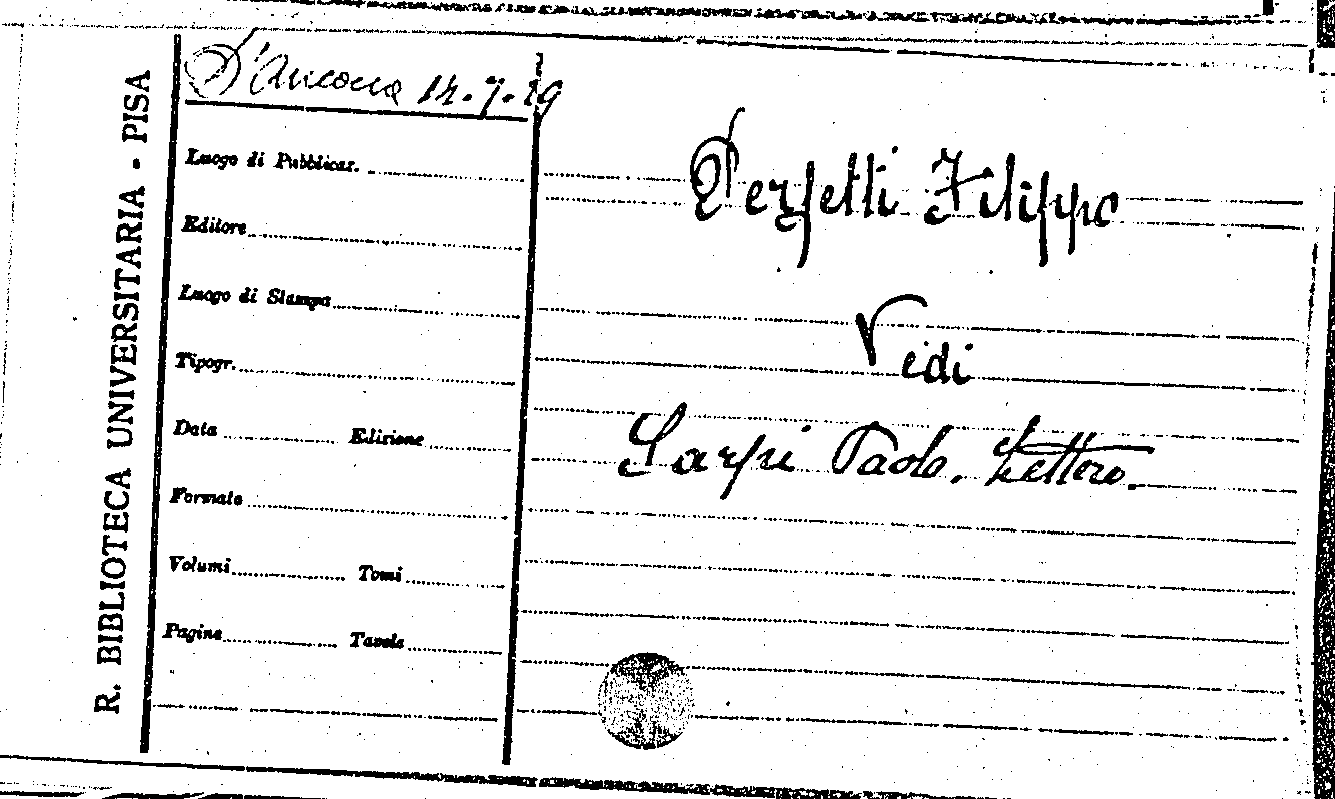 R. BIBLIOTECA UNIVERSITARIA - PISA
D'Ancona 14.7.19
Luogo di Pubblicaz.
Editore
Luogo di Stampa
Tipogr.
Data Edizione
Formato
Volumi Tomi
Pagine Tavole
Perfetti Filippo
Vedi
Sarpi Paolo. Lettere.